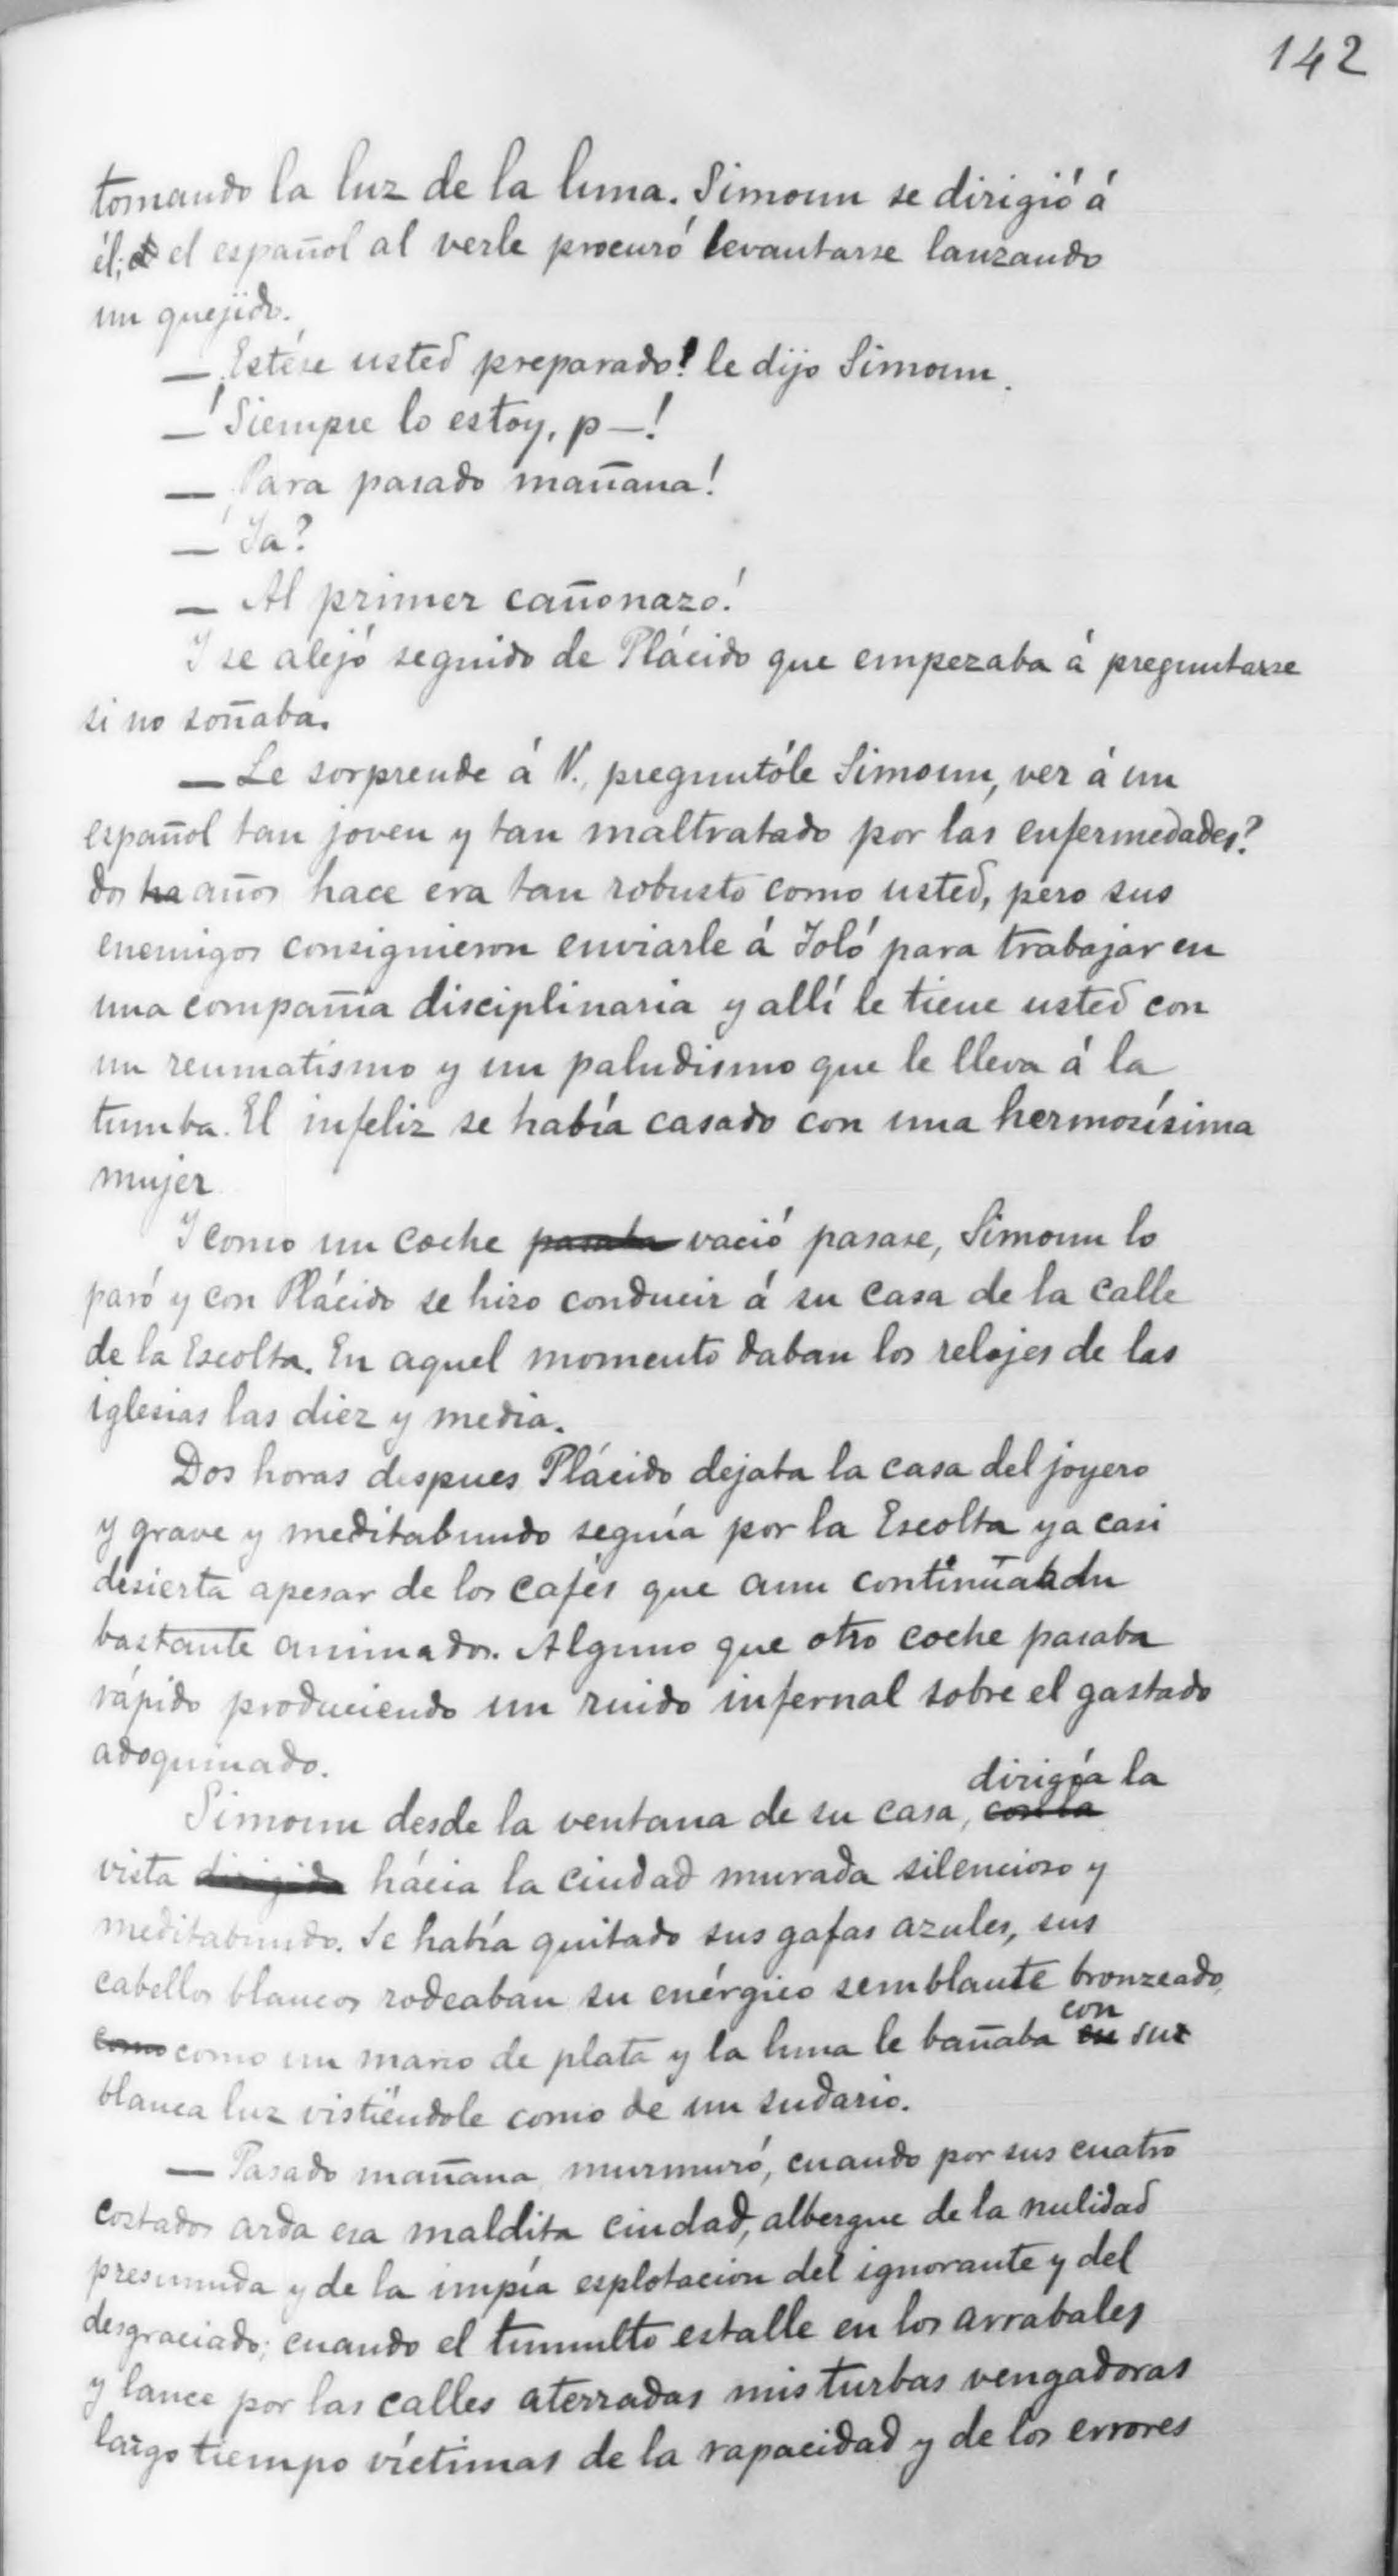 142
tomando la luz de la luna. Simoun se dirigió á
él; el español al verle procuró levantarse lanzando
un quejido.
— ¡Estése usted preparado! le dijo Simoun.
— ¡Siempre lo estoy, p—!
— ¡Para pasado mañana!
— ¿Ya?
— Al primer cañonazo!
Y se alejó seguido de Plácido que empezaba á preguntarse
si no soñaba.
— Le sorprende á V., preguntóle Simoun, ver á un
español tan joven y tan maltratado por las enfermedades?
dos ha años hace era tan robusto como usted, pero sus
enemigos consiguieron enviarle á Joló para trabajar en
una compañia disciplinaria y allí le tiene usted con
un reumatismo y un paludismo que le lleva á la
tumba. El infeliz se había casado con una hermosísima
mujer
Y como un coche pasaba vació pasase, Simoun lo
paró y con Plácido se hizo conducir á su casa de la calle
de la Escolta. En aquel momento daban los relojes de las
iglesias las diez y media.
Dos horas despues Plácido dejaba la casa del joyero
y grave y meditabundo seguía por la Escolta ya casi
desierta apesar de los cafés que aun continuaban
bastante animados. Alguno que otro coche pasaba
rápido produciendo un ruido infernal sobre el gastado
adoquinado.
dirigía la
Simoun desde la ventana de su casa, con la
vista dirigida hácia la ciudad murada silencioso y
meditabundo. Se había quitado sus gafas azules, sus
cabellos blancos rodeaban su enérgico semblante bronzeado,
con
como como un marco de plata y la luna le bañaba en su
blanca luz vistiéndole como de un sudario.
— Pasado mañana murmuró, cuando por sus cuatro
costados arda esa maldita ciudad, albergue de la nulidad
presumida y de la impía esplotacion del ignorante y del
desgraciado; cuando el tumulto estalle en los arrabales
y lance por las calles aterradas mis turbas vengadoras
largo tiempo víctimas de la rapacidad y de los errores